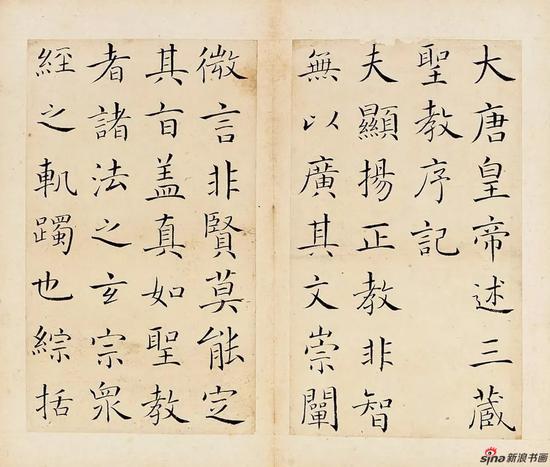 大唐皇帝述三藏
聖教序記
夫顯揚正教非智
無以廣其文崇闡
微言非賢莫能定
其旨盖真如聖教
者諸法之玄宗衆
經之軌躅也綜括
sina新浪书画